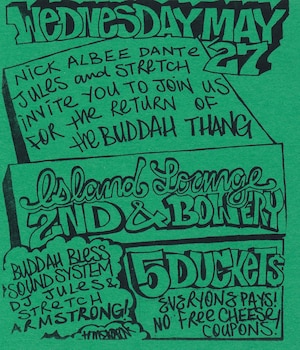 WEDNESDAY MAY
27
NICK ALBEE DANTE
JULES and STRETCH
INVITE YOU TO JOIN US
FOR the RETURN OF
the BUDDAH THANG
Island Lounge
2ND & BOWERY
BUDDAH BLESS
SOUND SYSTEM
DJ JULES &
STRETCH
ARMSTRONG!
5 DUCKETS
EVERYONE PAYS!
NO FREE CHEESE
COUPONS!